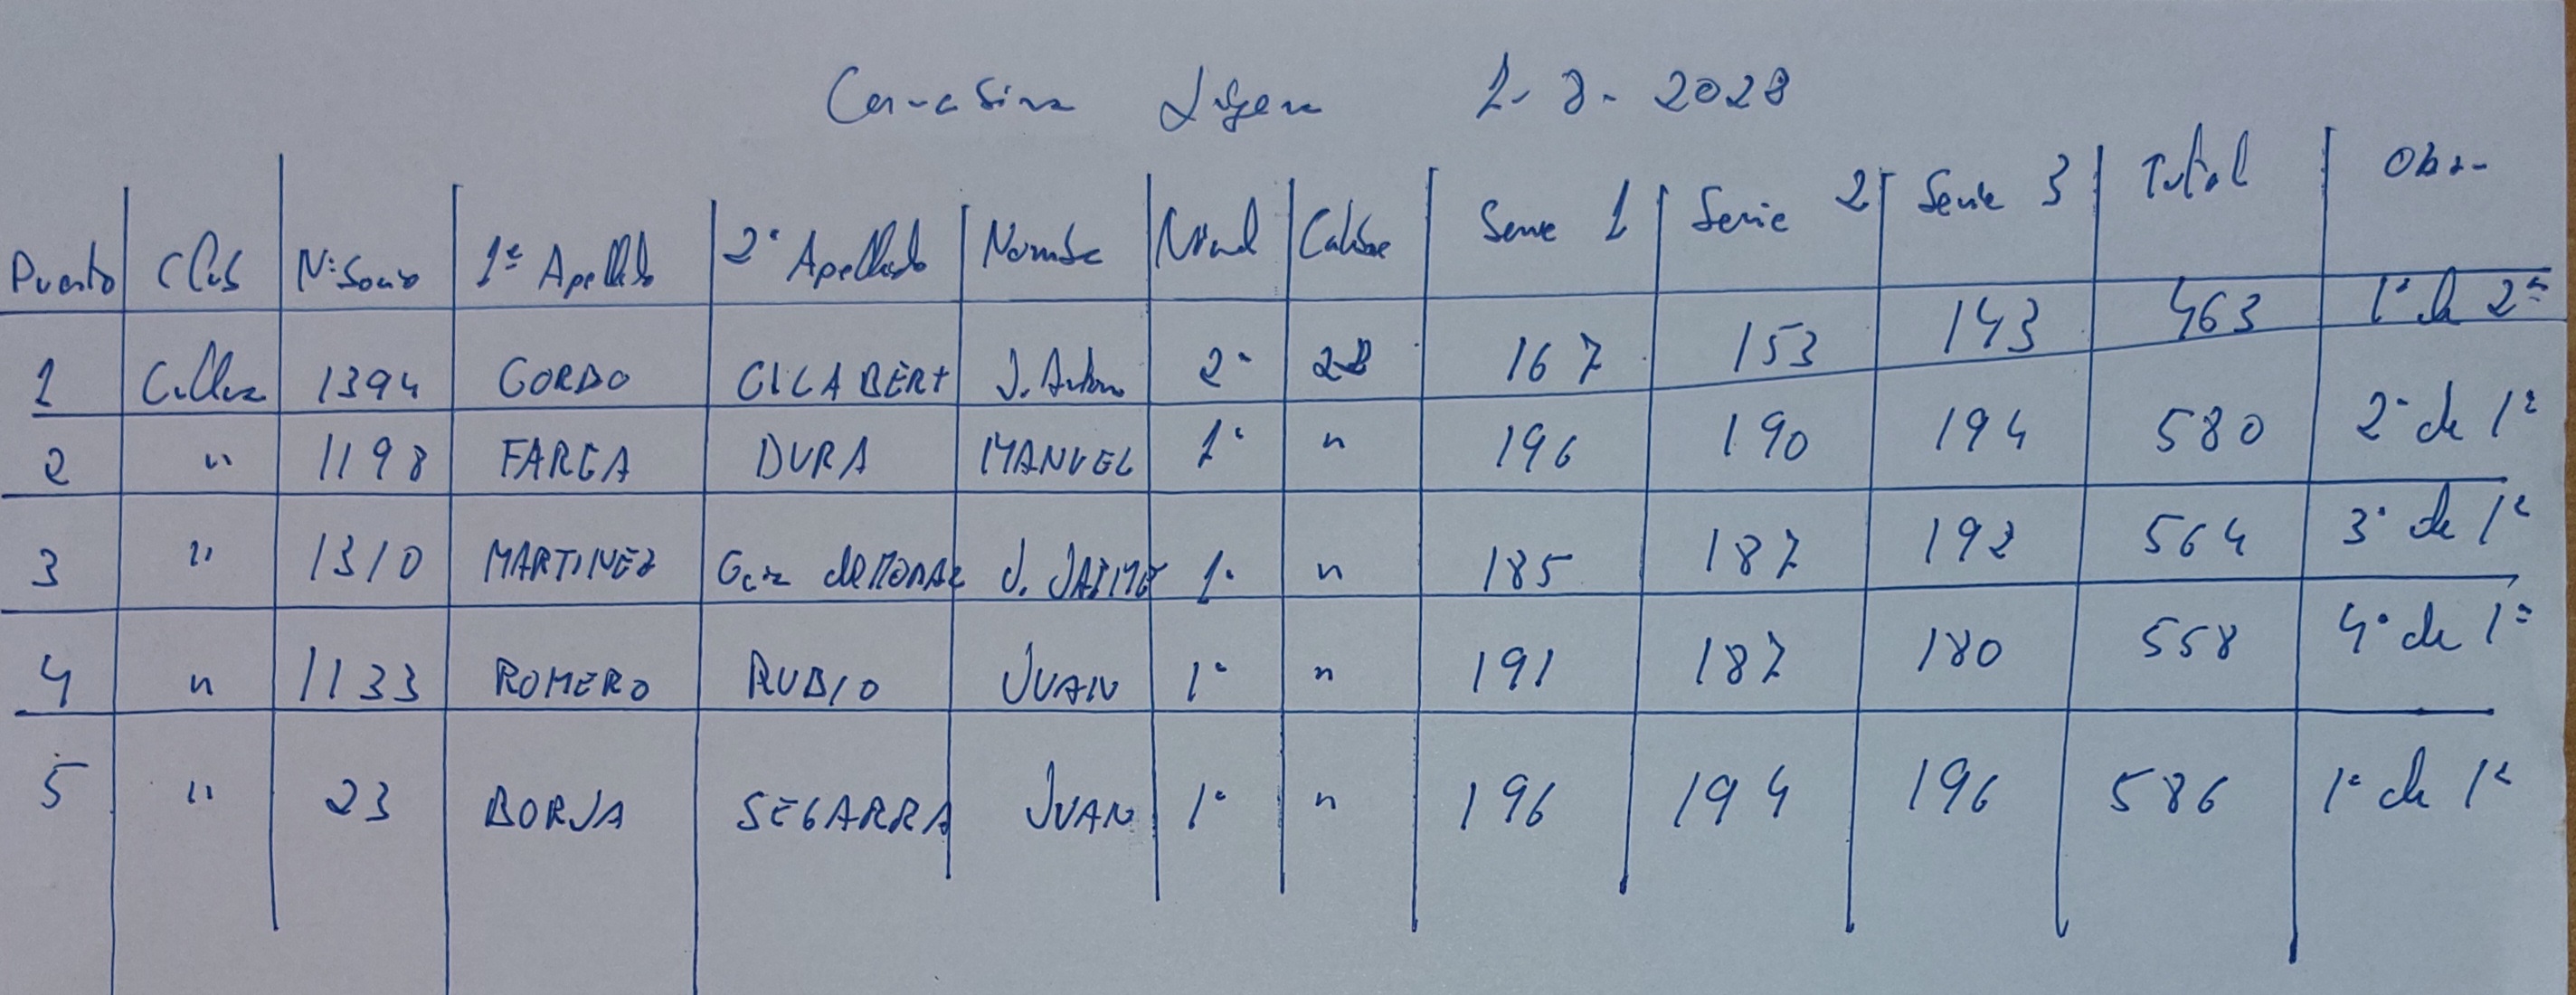 Carabina Ligera 2-8-2028
Puesto Club Nº Socio 1er Apellido 2º Apellido Nombre Nivel Calibre Serie 1 Serie 2 Serie 3 Total Obs-
1 Cullera 1394 GORDO GILABERT J. Antonio 2ª 22 167 153 143 463 1º de 2ª
2 " 1198 FARGA DURA MANUEL 1ª " 196 190 194 580 2º de 1ª
3 " 1310 MARTINEZ J. JAIME 1ª " 185 187 192 564 3º de 1ª
4 " 1133 ROMERO RUBIO JUAN 1ª " 191 187 180 558 4º de 1ª
5 " 23 BORJA SEGARRA JUAN 1ª " 196 194 196 586 1º de 1ª